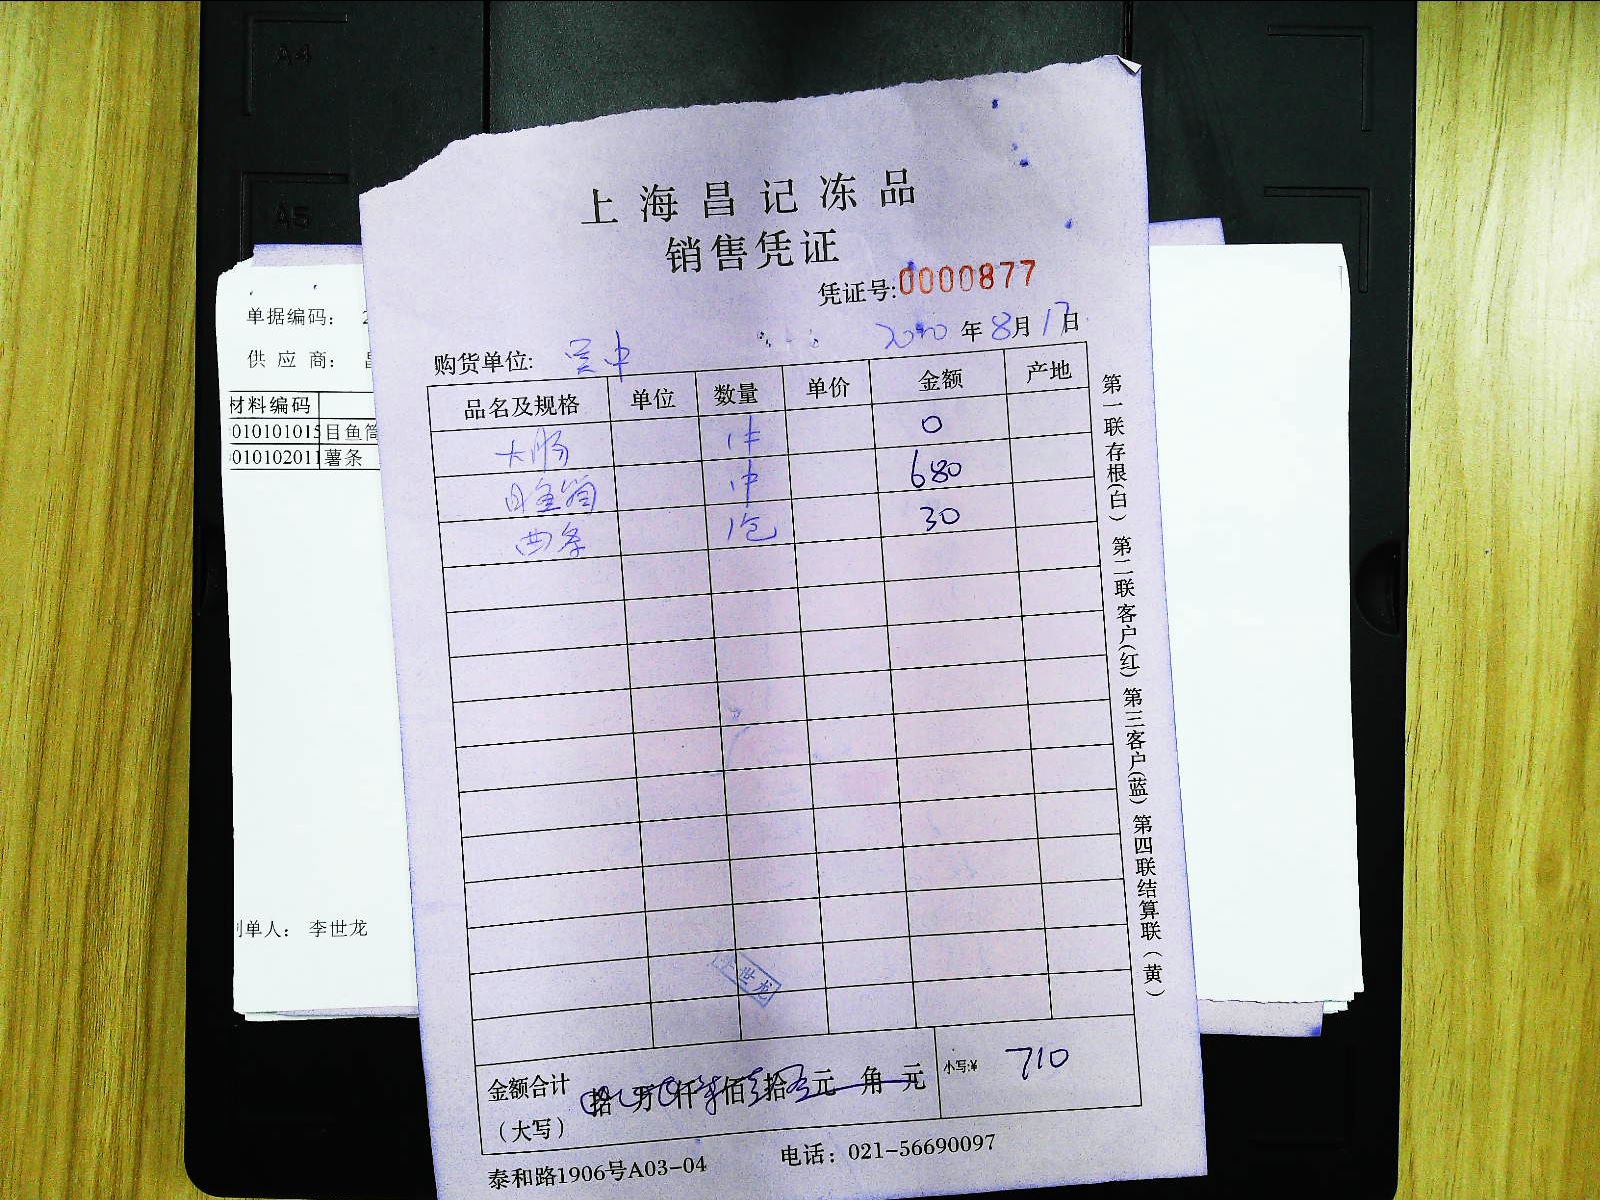 A4
A5
上海昌记冻品
销售凭证
凭证号:0000877
2020年8月17日
购货单位: 吴中
品名及规格 单位 数量 单价 金额 产地
大肠 1件 0
目鱼筒 1件 680
西条 1包 30
金额合计 拾 万 仟 佰 拾 元 角 元 小写:¥ 710
（大写）
泰和路1906号A03-04 电话：021-56690097
第一联存根(白) 第二联客户(红) 第三客户(蓝) 第四联结算联（黄）
世龙
单据编码： 2
供应商：
材料编码
010101015 目鱼筒
010102011 薯条
制单人： 李世龙